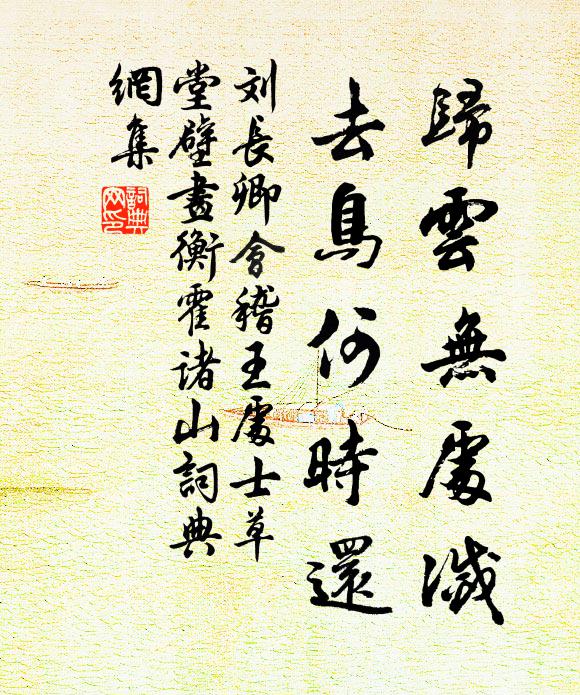 歸雲無處滅
去鳥何時還
刘長卿會稽王處士草
堂壁畫衡霍诸山詞典
網集
詞典
网印